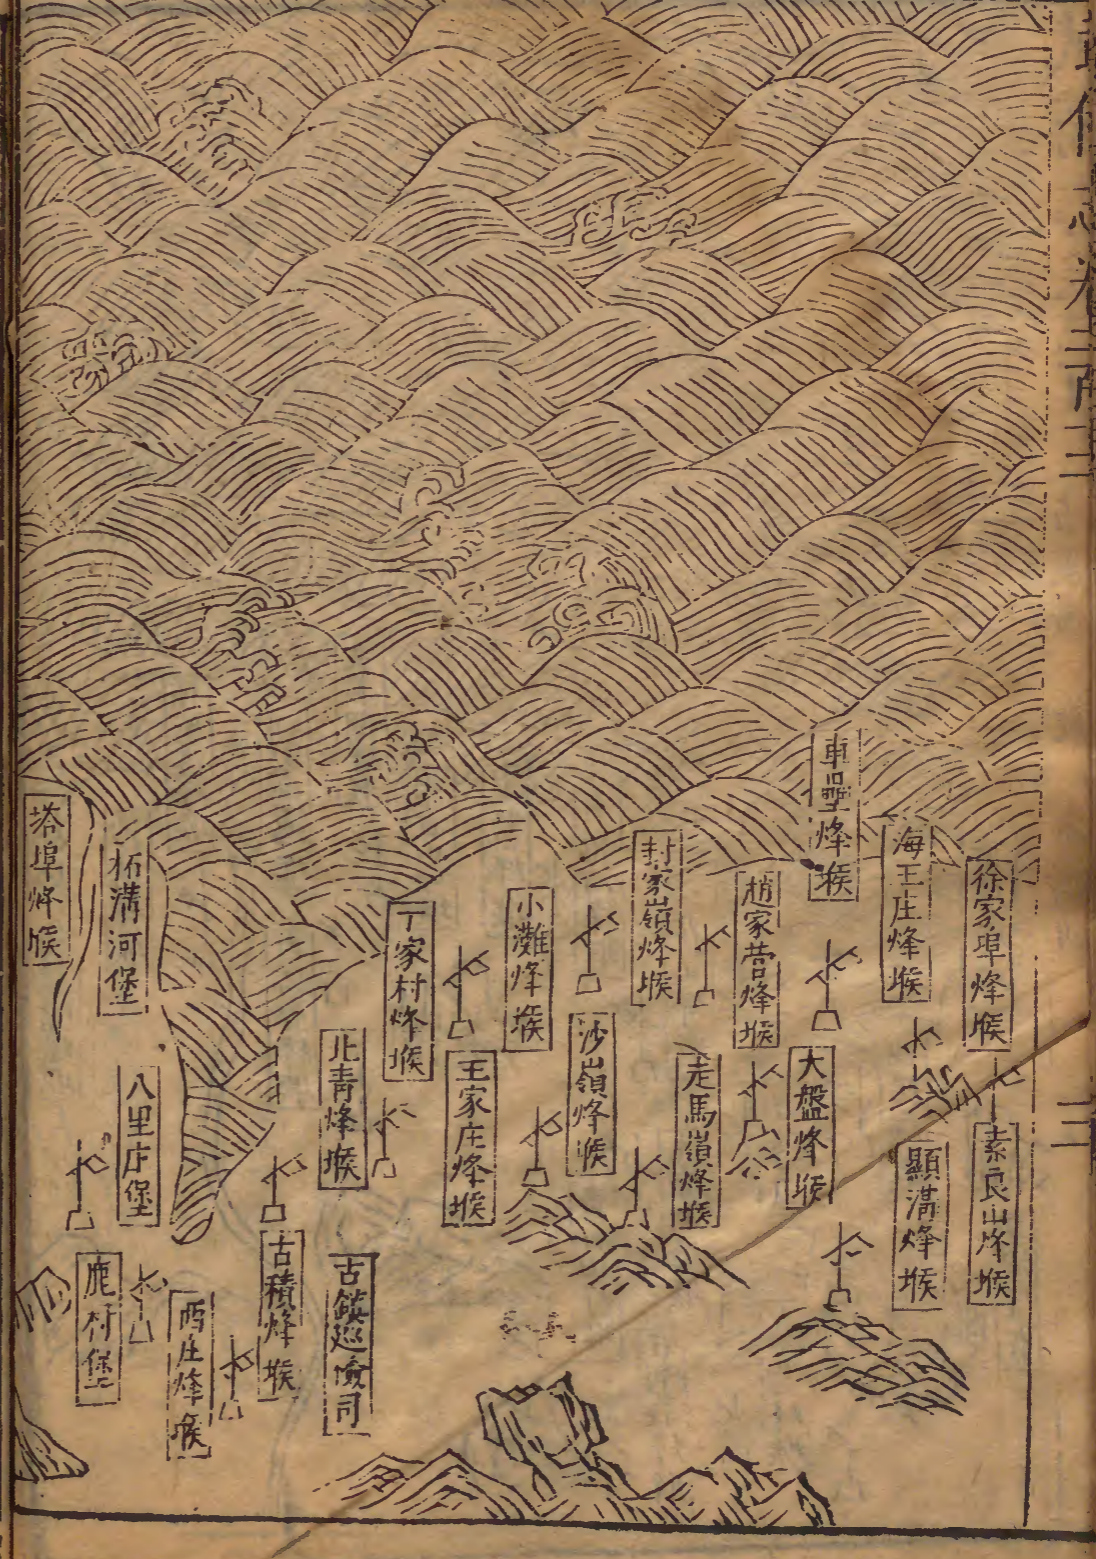 徐家埠烽堠
素良山烽堠
海王庄烽堠
顯溝烽堠
車疊烽堠
大盤烽堠
趙家營烽堠
走馬嶺烽堠
封家嶺烽堠
沙嶺烽堠
小灘烽堠
王家庄烽堠
丁家村烽堠
北青烽堠
古鎮巡檢司
古積烽堠
西庄烽堠
八里庄堡
柘溝河堡
鹿村堡
塔埠烽堠